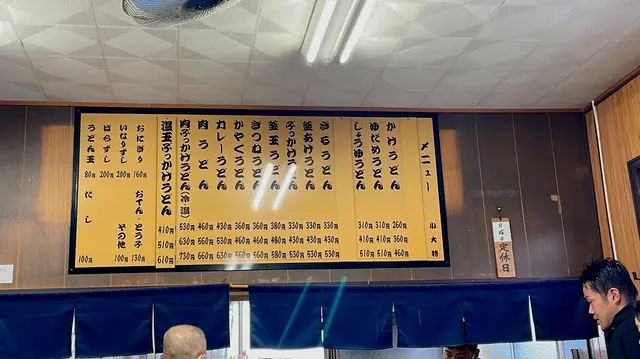 メニュー 小 大 特
かけうどん 260円 360円 460円
ゆだめうどん 310円 410円 510円
しょうゆうどん 310円 410円 510円
ざるうどん 330円 430円 530円
釜あげうどん 330円 430円 530円
ぶっかけうどん 330円 430円 530円
釜玉うどん 380円 480円 580円
きつねうどん 360円 460円 560円
かやくうどん 360円 460円 560円
カレーうどん 430円 530円 630円
肉うどん 460円 560円 660円
肉ぶっかけうどん(冷・温) 530円 630円 730円
温玉ぶっかけうどん 410円 510円 610円
おにぎり 160円 おでん 130円
いなりずし 200円 その他 100円
ばらずし 200円
うどん玉 80円 だし 100円
定休日